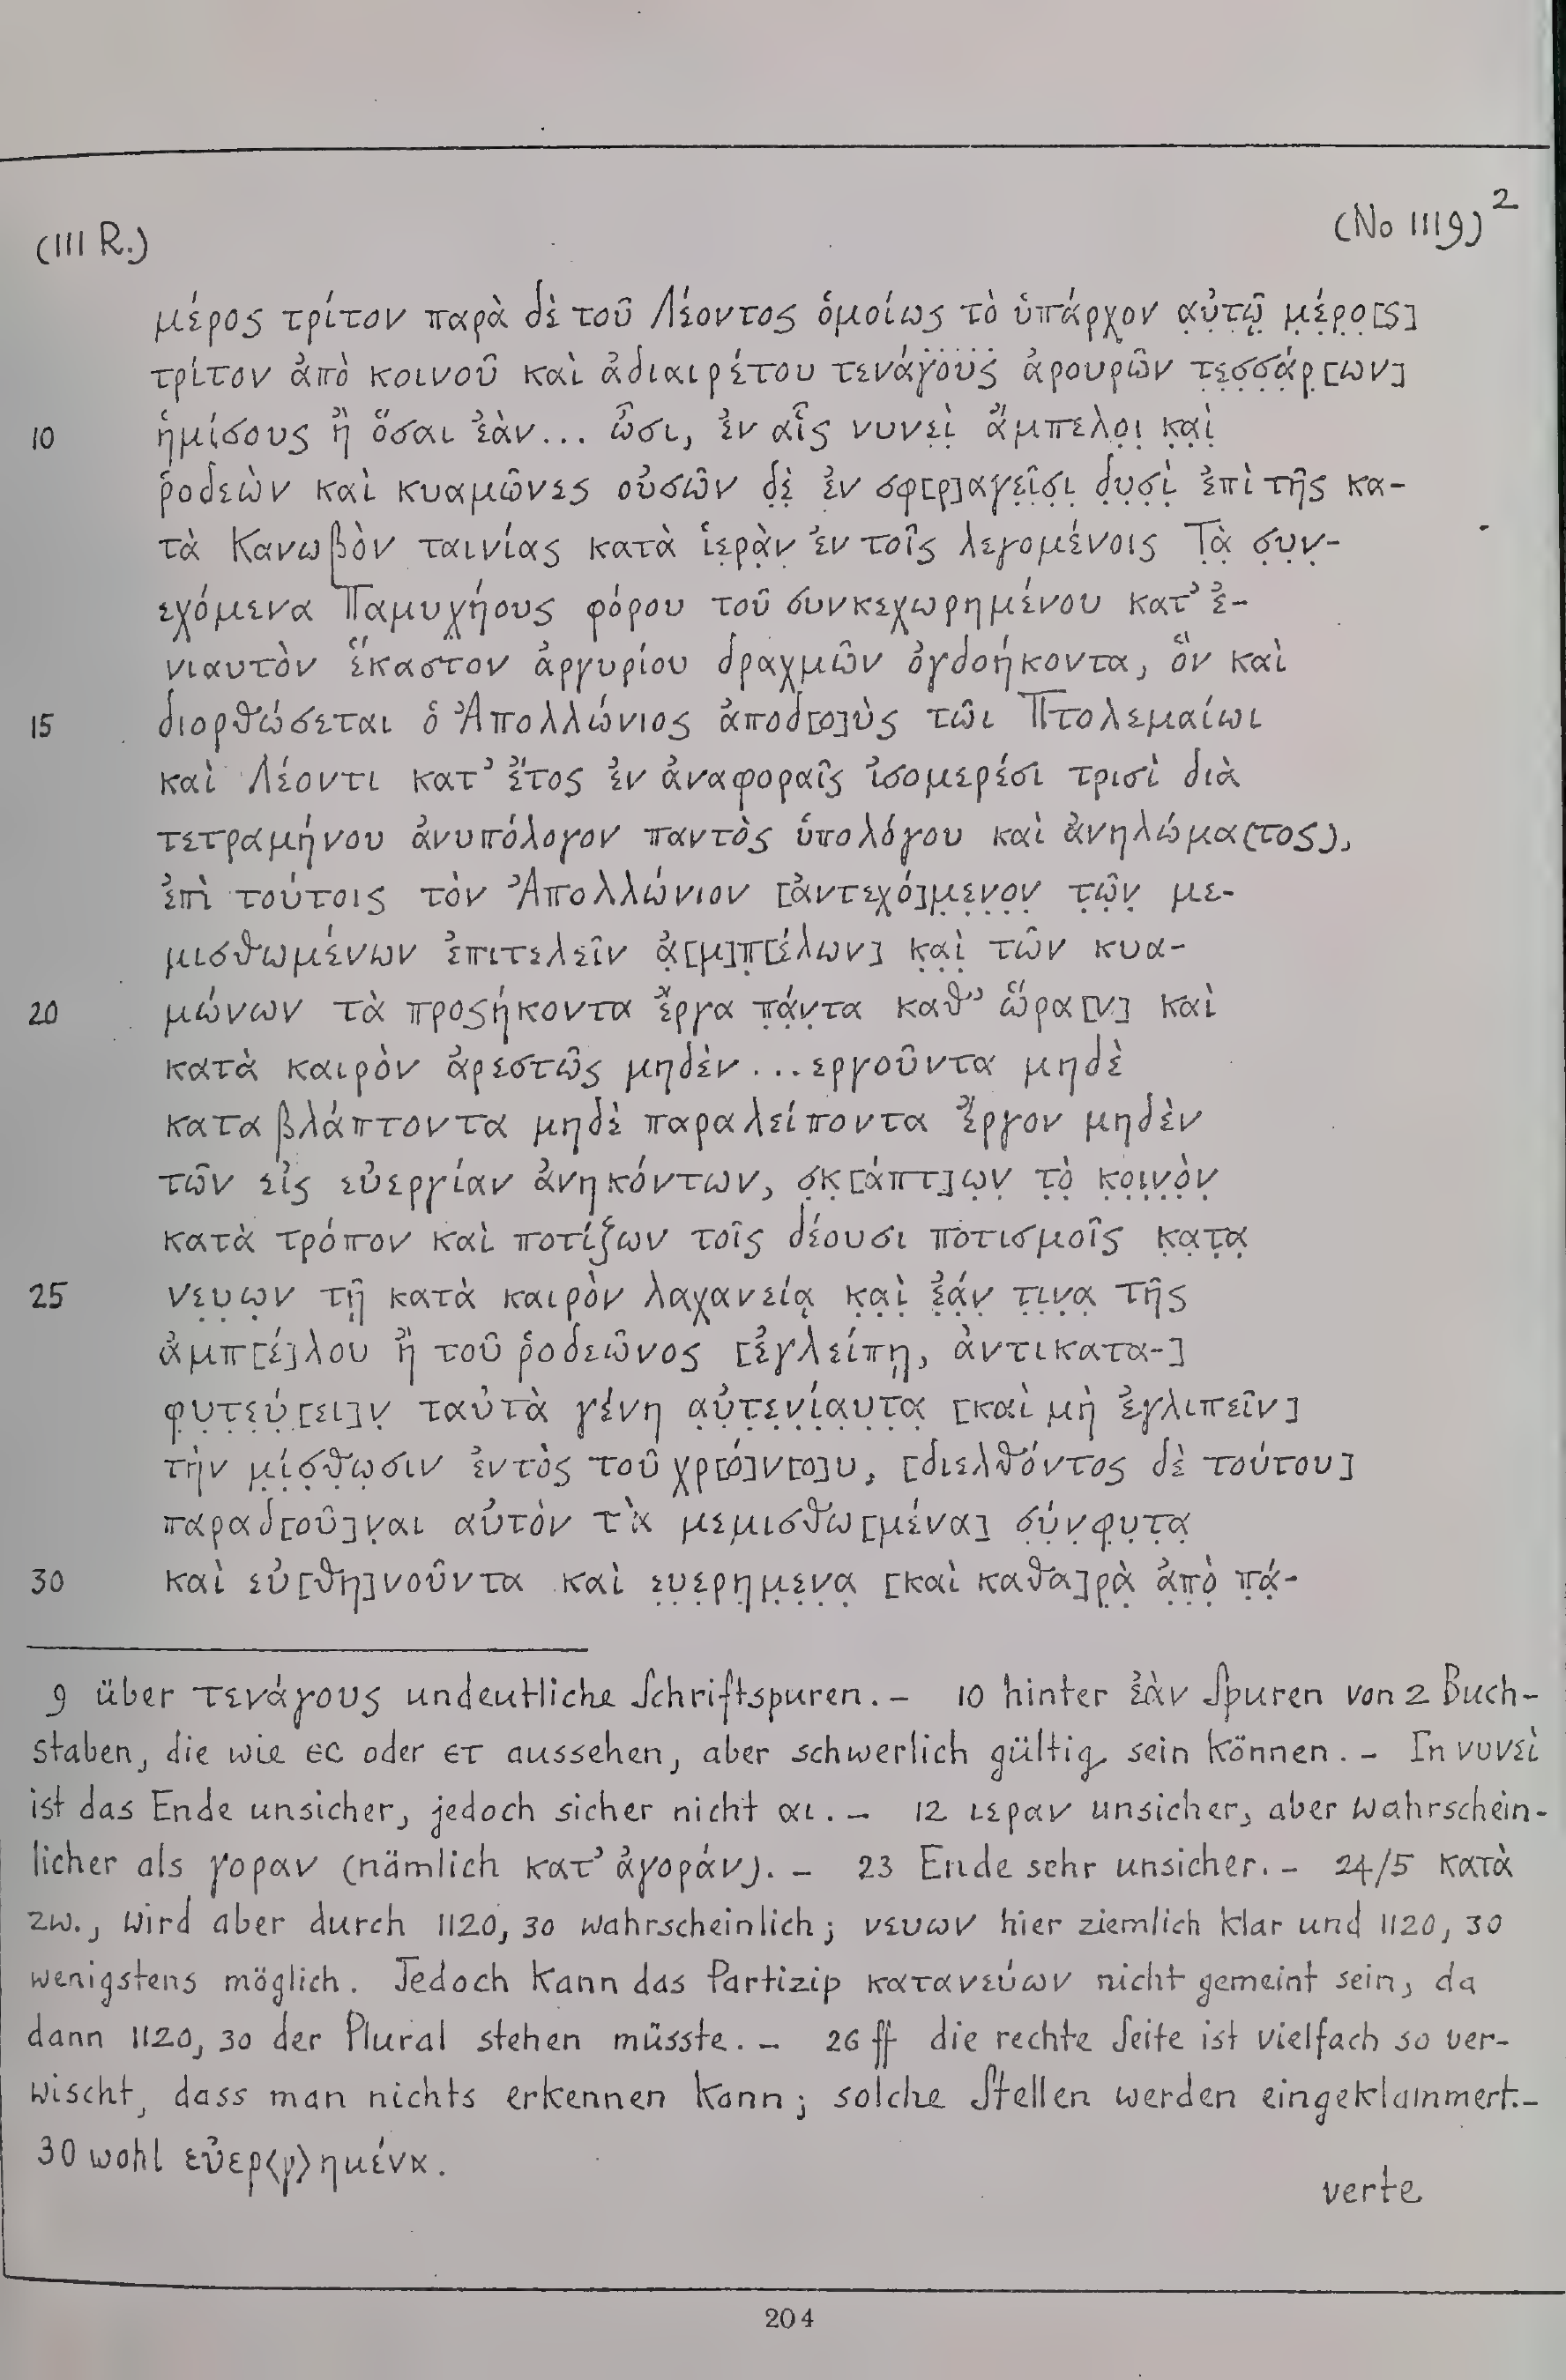 (III R.) (No 1119)²
μέρος τρίτον παρὰ δὲ τοῦ Λέοντος ὁμοίως τὸ ὑπάρχον α̣ὐ̣τῷ̣ μ̣έ̣ρ̣ο̣[ς]
τρίτον ἀπὸ κοινοῦ καὶ ἀδιαιρέτου τενάγους ἀρουρῶν τ̣ε̣σ̣σ̣ά̣ρ̣[ων]
10 ἡμίσους ἢ ὅσαι ἐὰν... ὦσι, ἐν αἷς νυνε̣ὶ̣ ἄμπελο̣ι̣ κ̣α̣ὶ̣
ῥοδεὼν καὶ κυαμῶνες οὐσῶν δ̣ὲ̣ ἐν σφ[ρ]αγε̣ῖ̣σ̣ι̣ δ̣υ̣σ̣ὶ̣ ἐπὶ τῆς κα-
τὰ Κανωβὸν ταινίας κατὰ ἱε̣ρ̣ὰ̣ν̣ ἐν τοῖς λεγομένοις Τ̣ὰ̣ σ̣υ̣ν̣-
εχόμενα Παμυχήους φόρου τοῦ συνκεχωρημένου κατ’ ἐ-
νιαυτὸν ἕκαστον ἀργυρίου δραχμῶν ὀγδοήκοντα, ὃν καὶ
15 διορθώσεται ὁ Ἀπολλώνιος ἀποδ[ο]ὺς τῶι Πτολεμαίωι
καὶ Λέοντι κατ’ ἔτος ἐν ἀναφοραῖς ἰσομερέσι τρισὶ διὰ
τετραμήνου ἀνυπόλογον παντὸς ὑπολόγου καὶ ἀνηλώμα(τος),
ἐπὶ τούτοις τὸν Ἀπολλώνιον [ἀντεχό]μ̣ε̣ν̣ο̣ν̣ τ̣ῶ̣ν̣ με-
μισθωμένων ἐπιτελεῖν ἀ̣[μ]π̣[έλων] κ̣α̣ὶ̣ τῶν κυα-
20 μώνων τὰ προςήκοντα ἔργα π̣ά̣ν̣τα καθ’ ὥρα[ν] καὶ
κατὰ καιρὸν ἀρεστῶς μηδὲν ...εργοῦντα μηδὲ
καταβλάπτοντα μηδὲ παραλείποντα ἔργον μηδὲν
τῶν εἰς εὐεργίαν ἀνηκόντων, σ̣κ̣[άπτ]ω̣ν̣ τ̣ὸ̣ κ̣ο̣ι̣ν̣ὸ̣ν̣
κατὰ τρόπον καὶ ποτίζων τοῖς δέουσι ποτισμοῖς κ̣α̣τ̣α̣
25 νε̣υ̣ω̣ν τῇ κατὰ καιρὸν λαχανείᾳ κ̣α̣ὶ̣ ἐ̣ά̣ν̣ τ̣ι̣ν̣α̣ τῆς
ἀμπ[έ]λου ἢ τοῦ ῥοδεῶνος [ἐγλείπῃ, ἀντικατα-]
φ̣υ̣τ̣ε̣ύ̣[ει]ν̣ ταὐτὰ γένη α̣ὐ̣τ̣ε̣ν̣ί̣α̣υ̣τ̣α̣ [καὶ μὴ ἐγλιπεῖν]
τὴν μ̣ί̣σ̣θ̣ω̣σιν ἐντὸς τοῦ χρ[ό]ν[ο]υ, [διελθόντος δὲ τούτου]
παραδ[οῦ]ν̣αι αὐτὸν τὰ μεμισθω[μένα] σ̣ύ̣ν̣φ̣υ̣τ̣α̣
30 καὶ εὐ[θη]νοῦντα καὶ ε̣υ̣ε̣ρ̣η̣μ̣ε̣ν̣α̣ [καὶ καθα]ρ̣ὰ̣ ἀ̣π̣ὸ̣ π̣ά̣-
9 über τενάγους undeutliche Schriftspuren. – 10 hinter ἐὰν Spuren von 2 Buch-
staben, die wie ϵϲ oder ϵτ aussehen, aber schwerlich gültig sein können. – In νυνεὶ
ist das Ende unsicher, jedoch sicher nicht αι. – 12 ιεραν unsicher, aber wahrschein-
licher als γοραν (nämlich κατ’ ἀγοράν). – 23 Ende sehr unsicher. – 24/5 κατὰ
zw., wird aber durch 1120, 30 wahrscheinlich; νευων hier ziemlich klar und 1120, 30
wenigstens möglich. Jedoch kann das Partizip κατανεύων nicht gemeint sein, da
dann 1120, 30 der Plural stehen müsste. – 26 ff die rechte Seite ist vielfach so ver-
wischt, dass man nichts erkennen kann; solche Stellen werden eingeklammert. –
30 wohl εὐερ⟨γ⟩ημένα.
verte
204